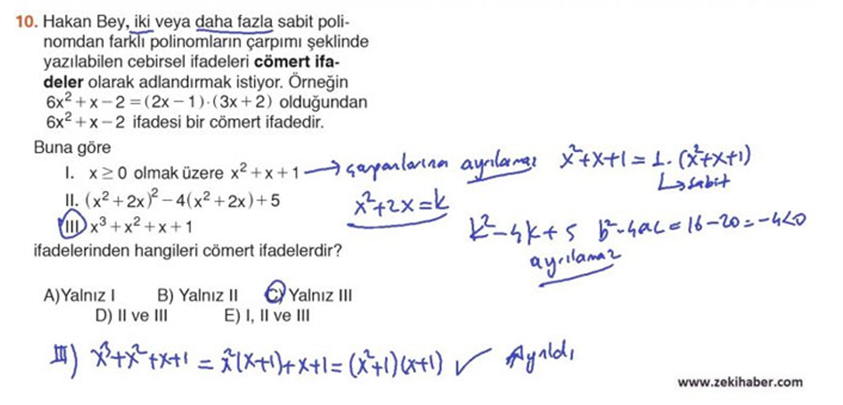 10. Hakan Bey, iki veya daha fazla sabit poli-
nomdan farklı polinomların çarpımı şeklinde
yazılabilen cebirsel ifadeleri cömert ifa-
deler olarak adlandırmak istiyor. Örneğin
6x² + x − 2 = (2x − 1)·(3x + 2) olduğundan
6x² + x − 2 ifadesi bir cömert ifadedir.
Buna göre
I. x ≥ 0 olmak üzere x² + x + 1 → çarpanlarına ayrılamaz x²+x+1 = 1.(x²+x+1)
↳ sabit
II. (x² + 2x)² − 4(x² + 2x) + 5 x²+2x=k
III. x³ + x² + x + 1 k²−4k+5 b²−4ac = 16−20 = −4<0
ayrılamaz
ifadelerinden hangileri cömert ifadelerdir?
A) Yalnız I B) Yalnız II C) Yalnız III
D) II ve III E) I, II ve III
III) x³+x²+x+1 = x²(x+1)+x+1 = (x²+1)(x+1) ✓ Ayrıldı
www.zekihaber.com